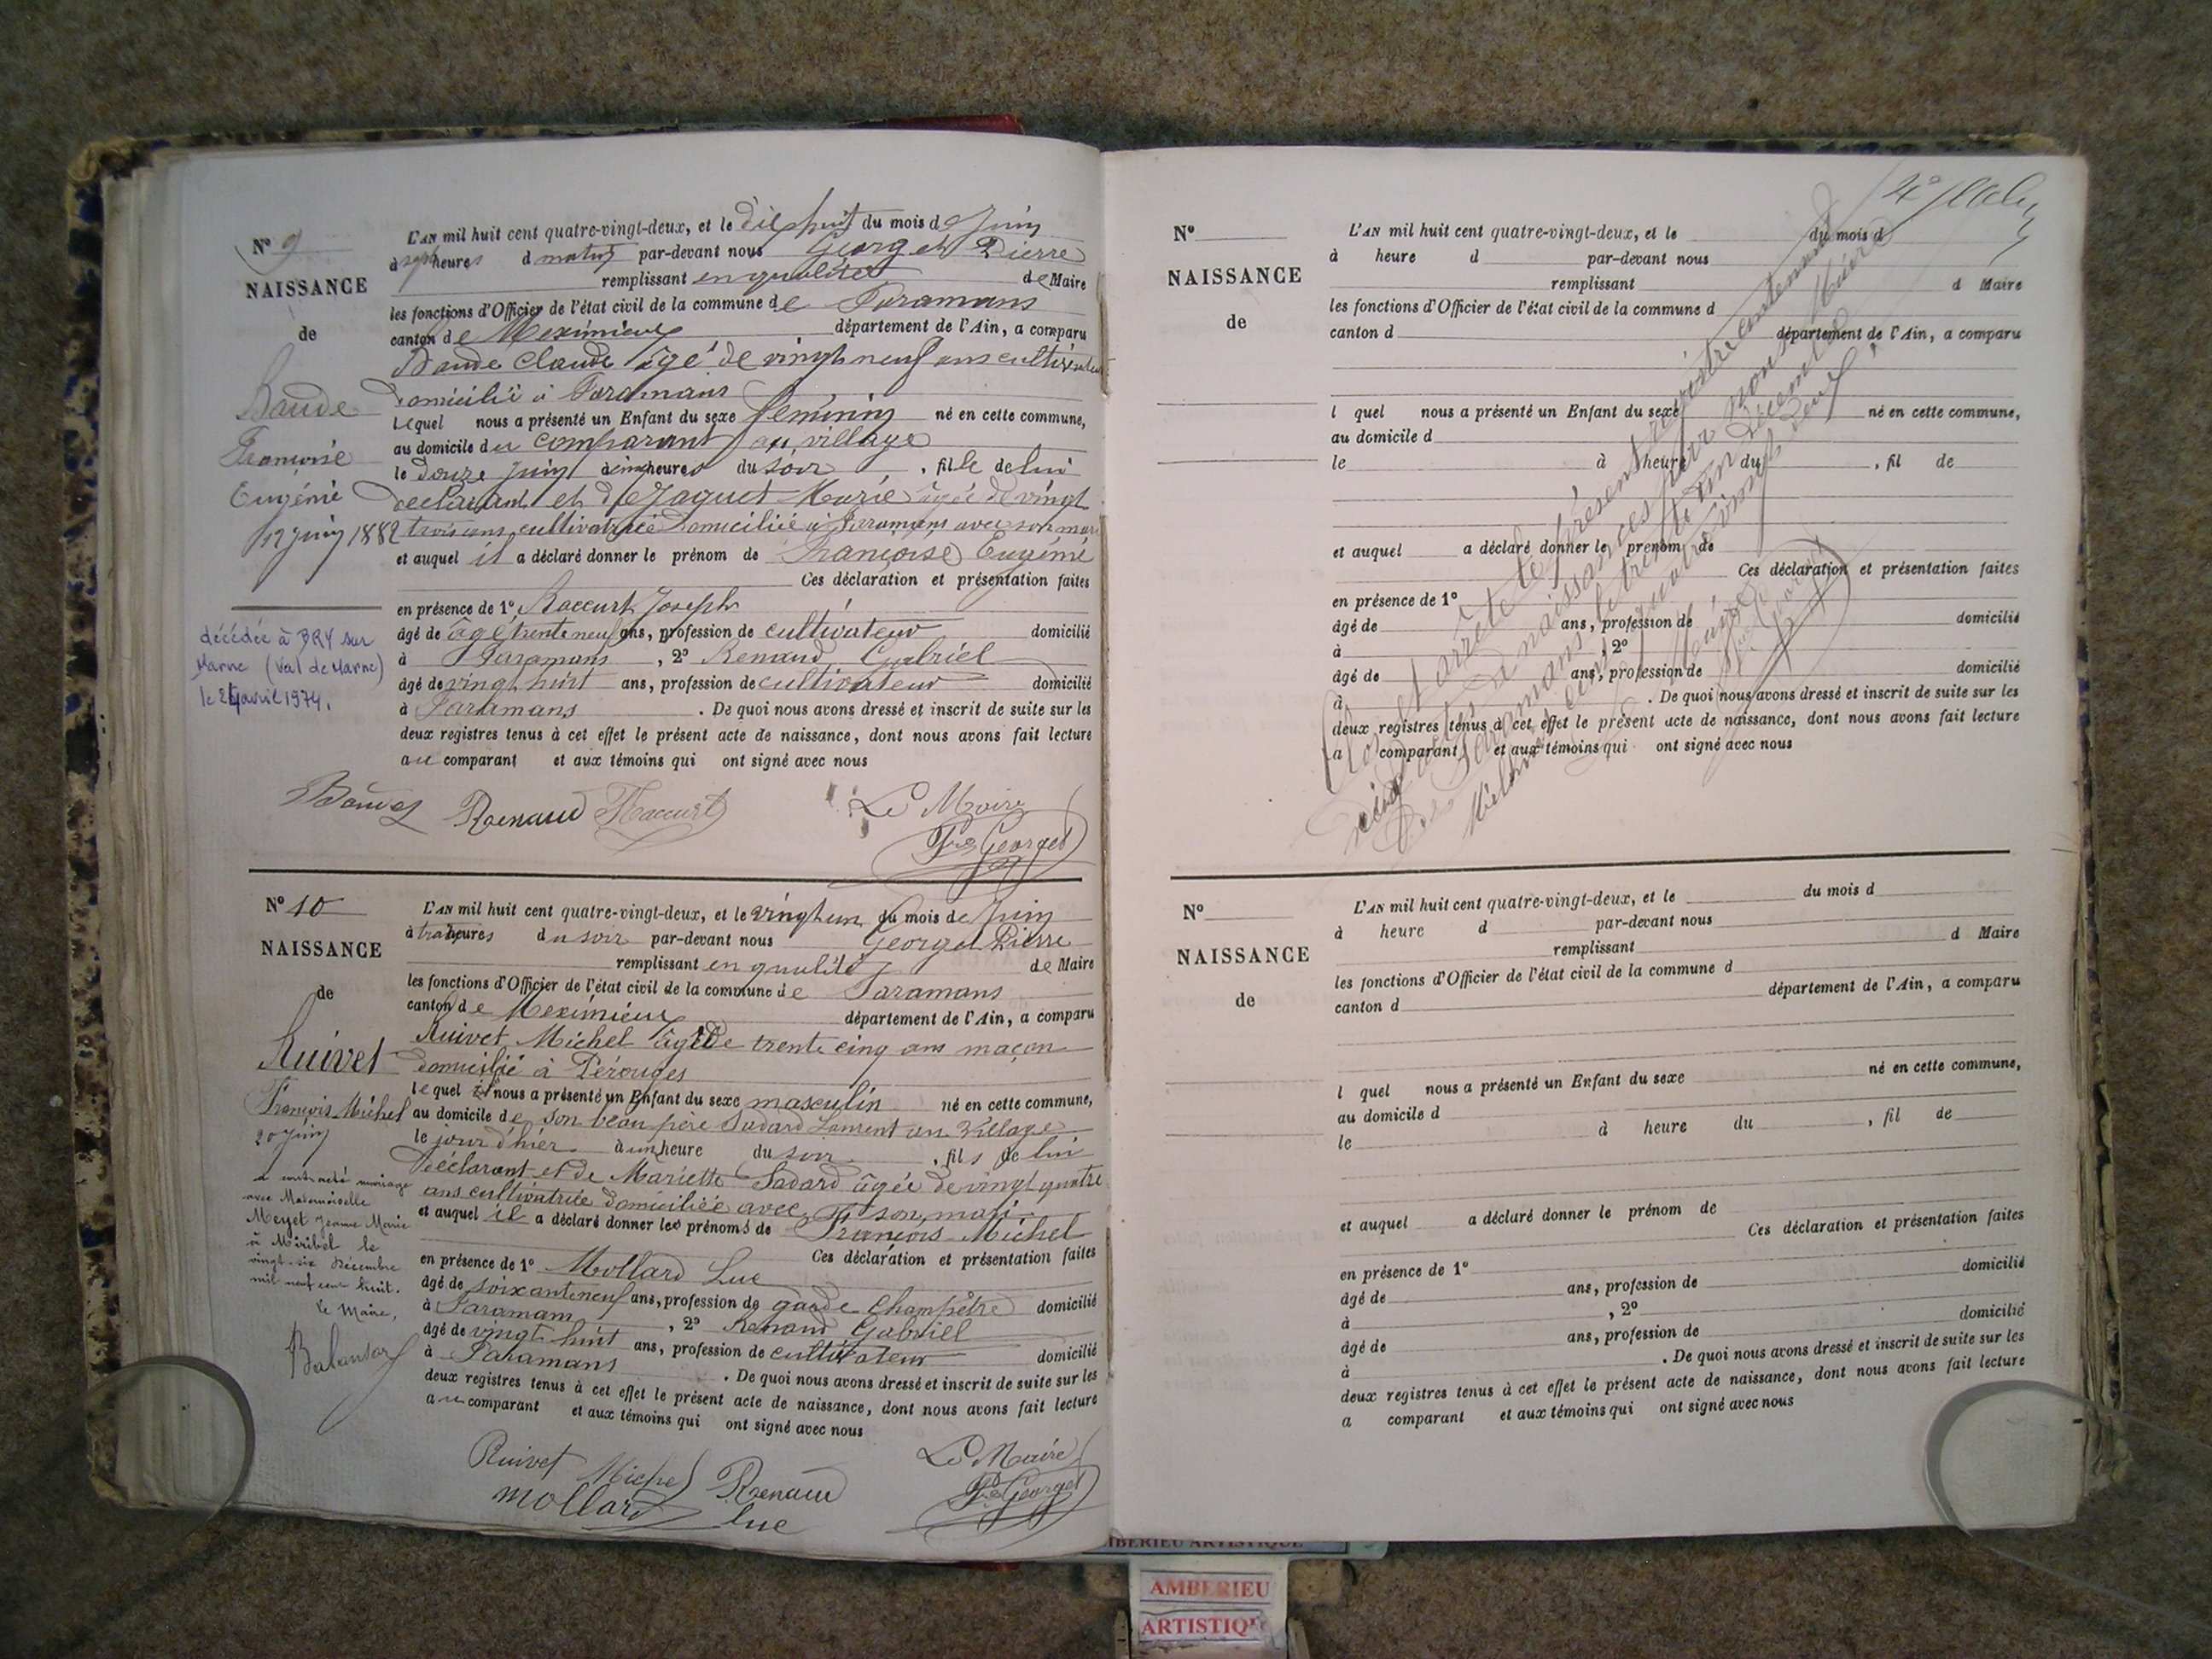 N° 9
NAISSANCE
de
Baude
Françoise
Eugénie
12 juin 1882
décédée à BRY sur
Marne (Val de Marne)
le avril 1974.
L'AN mil huit cent quatre-vingt-deux, et le dix huit du mois de Juin
à sept heures d matin par-devant nous Georget Pierre
remplissant en qualité de Maire
les fonctions d'Officier de l'état civil de la commune de Faramans
canton de Meximieux département de l'Ain, a comparu
Baude Claude âgé de vingt neuf ans cultivateur
domicilié à Faramans
lequel nous a présenté un Enfant du sexe féminin né en cette commune,
au domicile du comparant au village
le douze juin à cinq heures du soir, fille de lui
déclarant et de Jaquet Marie âgée de vingt
trois ans cultivatrice domiciliée à Faramans avec son mari
et auquel il a déclaré donner le prénom de Françoise Eugénie
Ces déclaration et présentation faites
en présence de 1° Raccurt Joseph
âgé de âgé trente neuf ans, profession de cultivateur domicilié
à Faramans, 2° Renaud Gabriel
âgé de vingt huit ans, profession de cultivateur domicilié
à Faramans. De quoi nous avons dressé et inscrit de suite sur les
deux registres tenus à cet effet le présent acte de naissance, dont nous avons fait lecture
au comparant et aux témoins qui ont signé avec nous
Baude Renaud Raccurt Le Maire
Georget
N° 10
NAISSANCE
de
Ruivet
François Michel
20 juin
a contracté mariage
avec Mademoiselle
Meyet Jeanne Marie
à Miribel le
vingt-six Décembre
mil neuf cent huit.
Le Maire,
L'AN mil huit cent quatre-vingt-deux, et le vingt un du mois de Juin
à trois heures du soir par-devant nous Georget Pierre
remplissant en qualité de Maire
les fonctions d'Officier de l'état civil de la commune de Faramans
canton de Meximieux département de l'Ain, a comparu
Ruivet Michel âgé de trente cinq ans maçon
domicilié à Pérouges
lequel nous a présenté un Enfant du sexe masculin né en cette commune,
au domicile de son beau père Sadard Laurent au Village
le jour d'hier à un heure du soir, fils de lui
déclarant et de Mariette Sadard âgée de vingt quatre
ans cultivatrice domiciliée avec son mari
et auquel il a déclaré donner les prénoms de François Michel
Ces déclaration et présentation faites
en présence de 1° Mollard Luc
âgé de soixante neuf ans, profession de garde Champêtre domicilié
à Faramans, 2° Renaud Gabriel
âgé de vingt huit ans, profession de cultivateur domicilié
à Faramans. De quoi nous avons dressé et inscrit de suite sur les
deux registres tenus à cet effet le présent acte de naissance, dont nous avons fait lecture
au comparant et aux témoins qui ont signé avec nous
Ruivet Michel Renaud Le Maire
Mollard luc Georget
N°
NAISSANCE
de
L'AN mil huit cent quatre-vingt-deux, et le du mois d
à heure d par-devant nous
remplissant d Maire
les fonctions d'Officier de l'état civil de la commune d
canton d département de l'Ain, a comparu
l quel nous a présenté un Enfant du sexe né en cette commune,
au domicile d
le à heure du, fil de
et auquel a déclaré donner le prénom de
Ces déclaration et présentation faites
en présence de 1°
âgé de ans, profession de domicilié
à, 2°
âgé de ans, profession de domicilié
à. De quoi nous avons dressé et inscrit de suite sur les
deux registres tenus à cet effet le présent acte de naissance, dont nous avons fait lecture
a comparant et aux témoins qui ont signé avec nous
Clos et arrêté le présent registre contenant
dix actes de naissances par nous Maire
de Faramans le trente un Décembre
Mil huit cent quatre vingt deux
N°
NAISSANCE
de
L'AN mil huit cent quatre-vingt-deux, et le du mois d
à heure d par-devant nous
remplissant d Maire
les fonctions d'Officier de l'état civil de la commune d
canton d département de l'Ain, a comparu
l quel nous a présenté un Enfant du sexe né en cette commune,
au domicile d
le à heure du, fil de
et auquel a déclaré donner le prénom de
Ces déclaration et présentation faites
en présence de 1°
âgé de ans, profession de domicilié
à, 2°
âgé de ans, profession de domicilié
à. De quoi nous avons dressé et inscrit de suite sur les
deux registres tenus à cet effet le présent acte de naissance, dont nous avons fait lecture
a comparant et aux témoins qui ont signé avec nous
AMBERIEU ARTISTIQUE
AMBERIEU
ARTISTIQUE